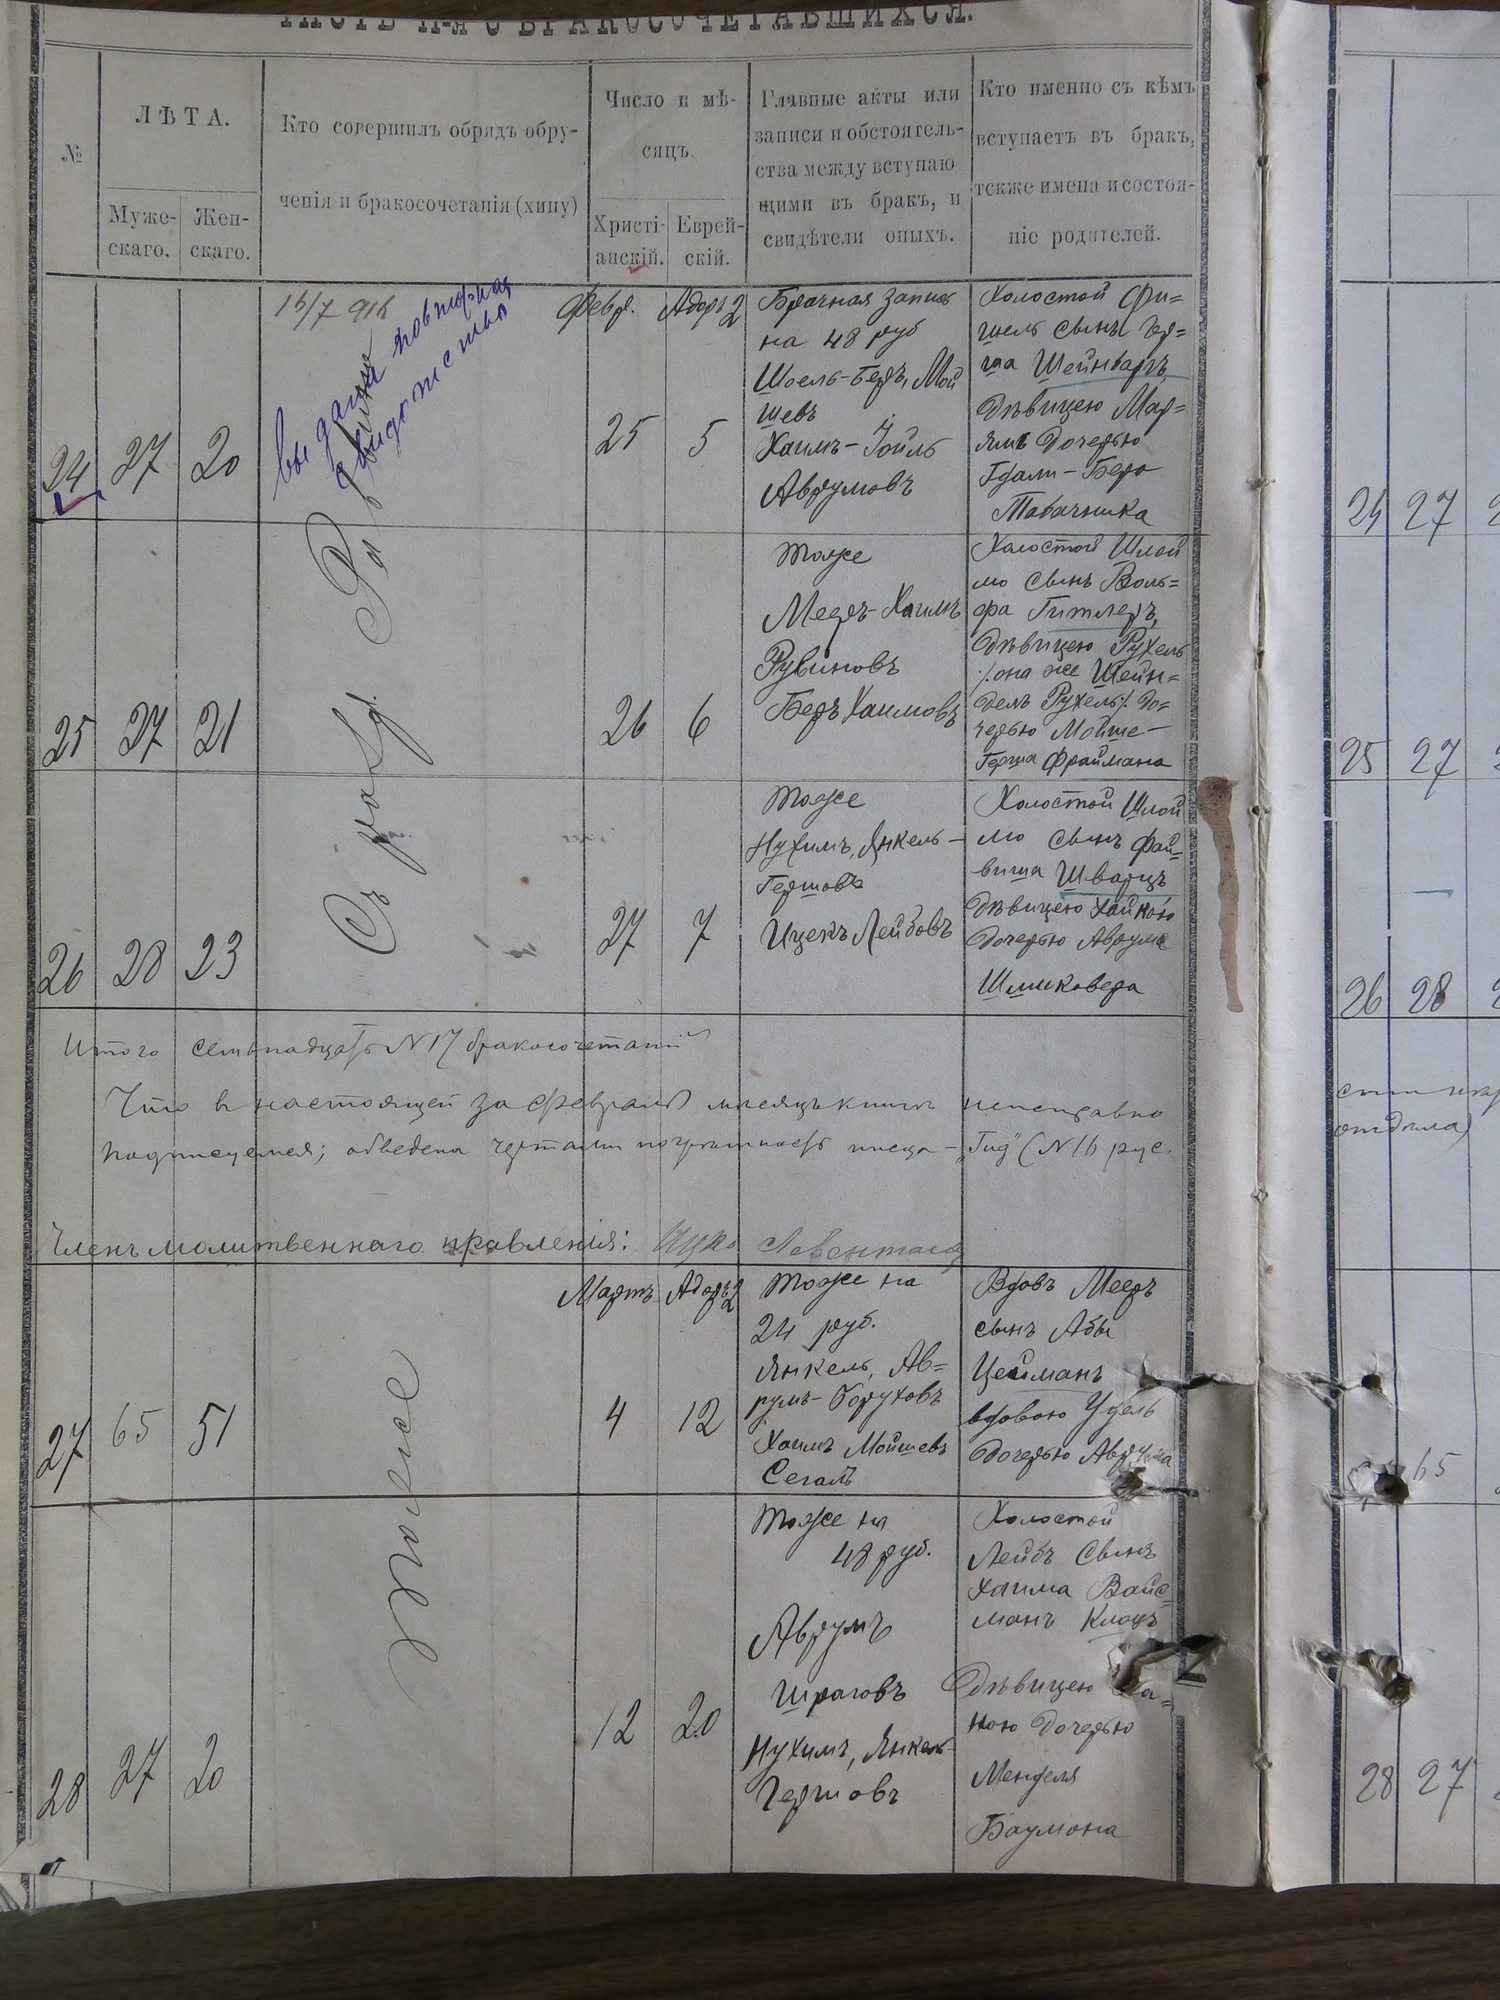 ЧАСТЬ II-я О БРАКОСОЧЕТАВШИХСЯ.
№
ЛѢТА.
Муже-
скаго.
Жен-
скаго.
Кто совершилъ обрядъ обру-
ченія и бракосочетанія (хипу)
Число и мѣ-
сяцъ.
Христі-
анскій.
Еврей-
скій.
Главные акты или
записи и обстоятель-
ства между вступаю
щими въ бракъ, и
свидѣтели оныхъ.
Кто именно съ кѣмъ
вступаетъ въ бракъ,
также имена и состоя-
ніе родителей.
24
27
20
выдана повторная
Февр.
25
Адоръ 2
5
Брачная запись
на 48 руб
Шоель-Беръ, Мой
шевъ
Хаимъ-Іойль
Аврумовъ
Холостой Фи=
шель сынъ Гер=
ша Шейнбергъ
Дѣвицею Мар=
ямъ дочерью
Гдали-Бера
Табачника
25
27
21
26
6
Тоже
Мееръ-Хаимъ
Рувиновъ
Беръ Хаимовъ
Холостой Шлой
мо сынъ Воль=
фа Гитлеръ,
Дѣвицею Рухель
/:она же Шейн=
дель Рухель:/ до=
черью Мойше-
Герша Фраймана
26
28
23
27
7
Тоже
Нухимъ, Янкель-
Гершовъ
Ицекъ Лейбовъ
Холостой Шлой
мо сынъ Фай=
виша Шварцъ
Дѣвицею Хайкою
Дочерью Аврума
Шмиковера
Итого семьнадцать N 17 бракосочетаній
Что в настоящей за февраль месяцъ книге неисправно
подписуемся; обведена чертами погрешность писца - „Гид" (N 16 рус.
Членъ молитвеннаго правленія: Ицко Левенталь
27
65
51
Мартъ
4
Адоръ 2
12
Тоже на
24 руб.
Янкель, Ав=
румъ-Боруховъ
Хаимъ Мойшевъ
Сегалъ
Вдовъ Мееръ
сынъ Абы
Цейманъ
вдовою Удель
Дочерью Аврума
Тоже
28
27
20
12
20
Тоже на
48 руб.
Аврумъ
Шраговъ
Нухимъ, Янкель-
Гершовъ
Холостой
Лейбъ сынъ
Хаима Вайс=
манъ Клоцъ
Дѣвицею
ною Дочерью
Менделя
Баумана
24 27
25 27
26 28
отдѣла)
65
28 27